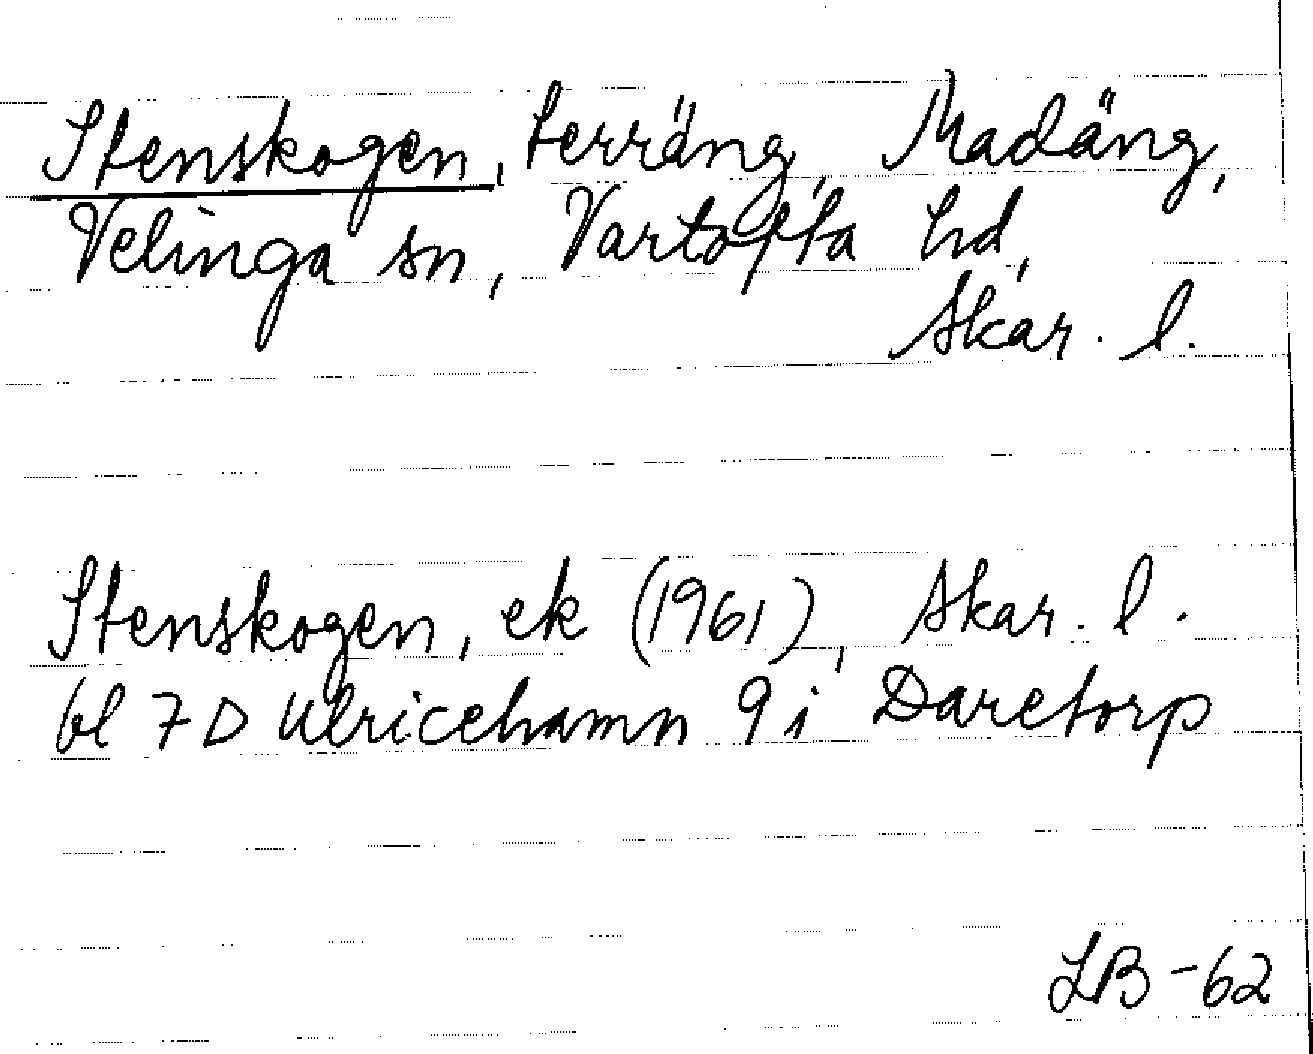 Stenskogen, terräng, Madäng,
Velinga sn, Vartofta hd,
Skar. l.
Stenskogen, ek (1961), Skar. l.
bl 7 D Ulricehamn 9 i Daretorp
LB-62